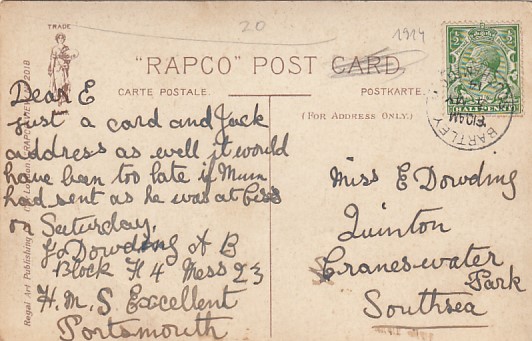 20
1914
TRADE
MARK
"RAPCO" POST CARD
CARTE POSTALE
POSTKARTE.
(FOR ADDRESS ONLY.)
Regal Art Publishing
BARTLEY
Dear E
just a card and Jack
address as well it would
have been too late if Mum
had sent as he was at
on Saturday,
J Dowding A B
Block H 4 Mess 23
H.M.S Excellent
Portsmouth
Miss E Dowding
Quinton
Craneswater
Park
Southsea